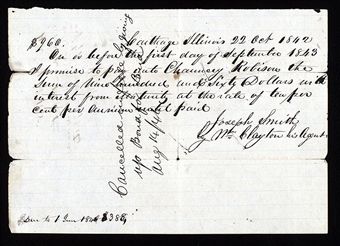 $960. Carthage Illinois 22 Oct 1842
On or before the first day of September 1843
I promise to pay unto Chauncey Robison the
Sum of Nine Hundred and Sixty Dollars with
interest from maturity at the rate of ten per
cent per annum until paid
Joseph Smith
By Wm Clayton his Agent
Cancelled by giving
up Bond for Deed
Aug 14
to 1 June 184